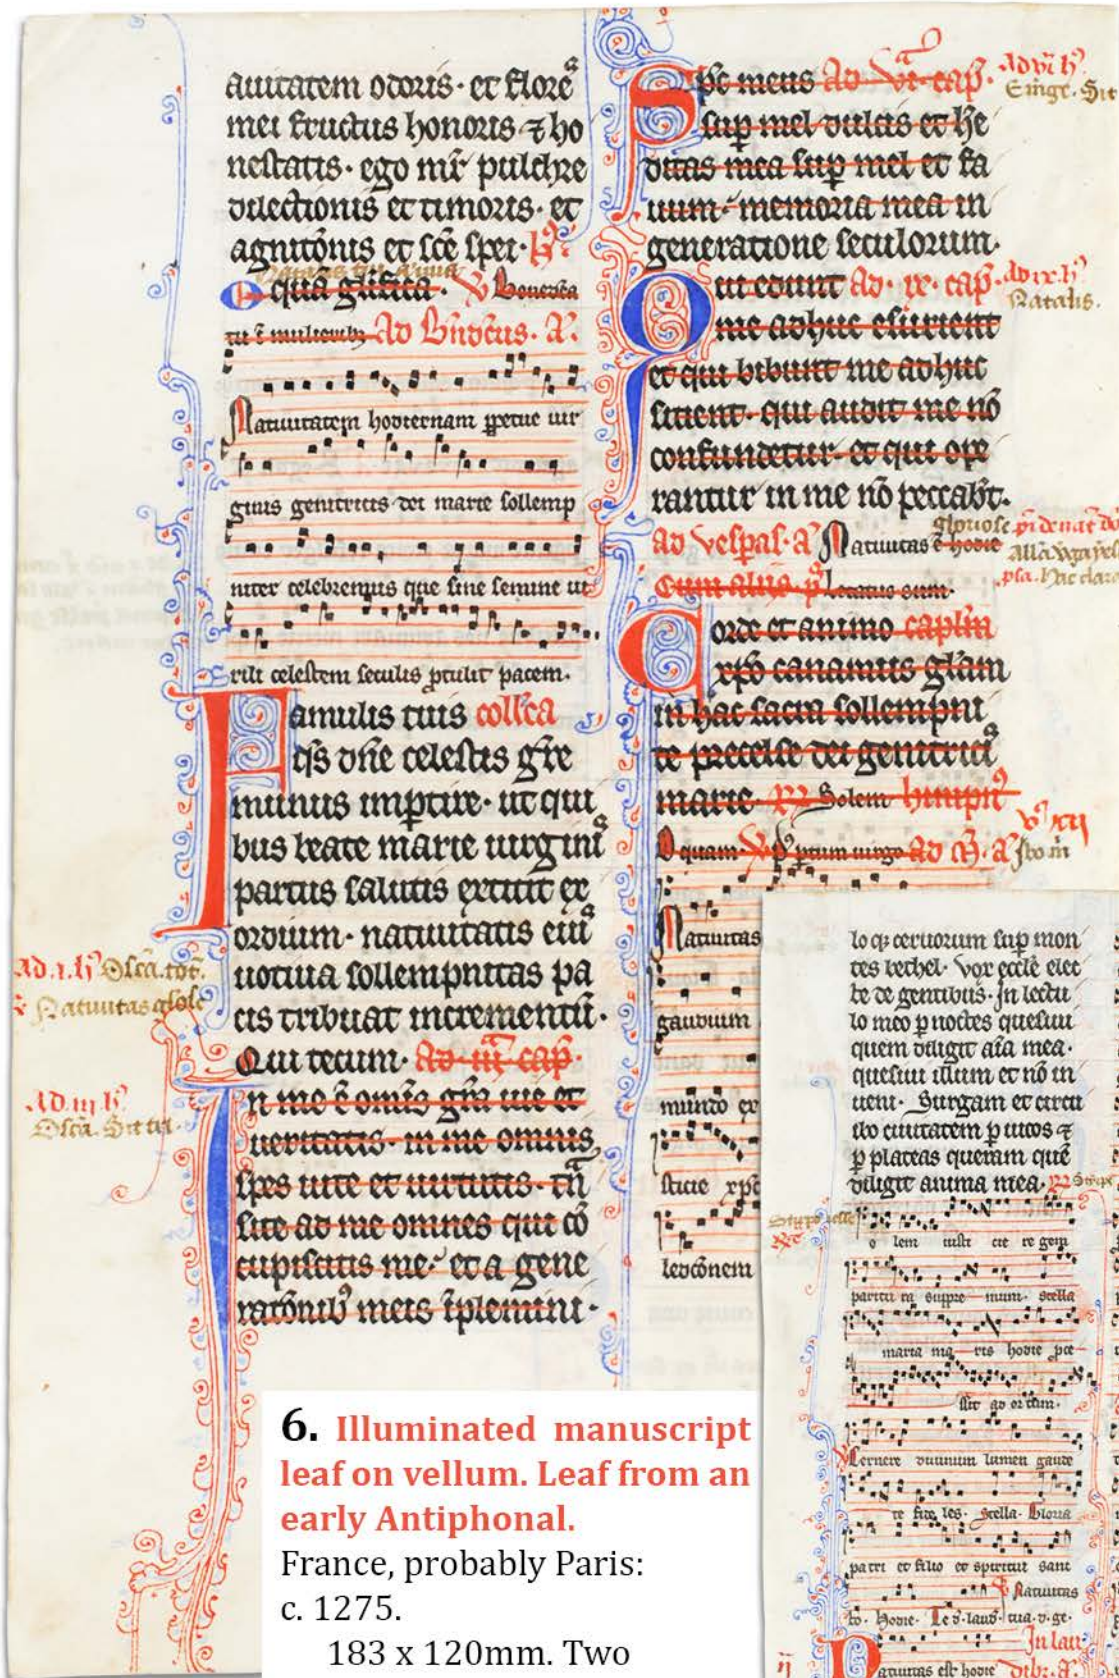 auitatem odoris · et flore᷒
mei fructus honoris ⁊ ho
nestatis · ego mr̄ pulchre
dilectionis et timoris · et
agnitōnis et sc̄e spei ·
qua
℣ Benedicta
tu ē mulieribꝫ Ad
Natiuitatem hodiernam ꝑpetue uir
ginis genitricis dei marie sollemp
niter celebremus que sine semine ui
rili celestem seculis ꝓtulit pacem ·
Famulis tuis coll̄ca
qs̄ dn̄e celestis gr̄e
munus imꝑtire · ut qui
bus beate marie uirgini᷒
partus salutis extitit ex
ordium · natiuitatis eiu᷒
uotiua sollempnitas pa
cis tribuat incrementū ·
Qui tecum · Ad iii cap̄ ·
In me ē omīs gr̄a uie et
ueritatis · in me omnis
spes uite et uirtutis · tn̄
site ad me omnes qui cō
cupiscitis me · et a gene
ratōnibꝰ meis īplemini ·
Ad . i . h
Ad . iii . h
Sp̄c meus Ad vi cap̄ ·
suꝑ mel dulcis et he
ditas mea suꝑ mel et fa
uum · memoria mea in
generatione seculorum ·
Qui edunt Ad · ix · cap̄ ·
me adhuc esurient
et qui bibunt me adhuc
sitient · qui audit me nō
confundetur · et qui ope
rantur in me nō peccabt̄ ·
ad vesꝑas · a Natiuitas ē hodie
Letatus sum ·
Corde et animo
xp̄o canamus gl̄am
in hac sacra sollempni
te precelse dei genitrici᷒
marie · Solem
O quam ·
Natiuitas
gaudium
mundo ex
sticie xp̄c
ledōnem
Natalis ·
gloriose
loqꝫ ceruorum suꝑ mon
tes bethel · vox eccl̄e elec
te de gentibus · In lectu
lo meo ꝑ noctes quesiui
quem diligit aīa mea ·
quesiui illum et nō in
ueni · Surgam et circu
ibo ciuitatem ꝑ uicos ⁊
ꝑ plateas queram quē
diligit anima mea ·
o lem iusti cie re gem
paritu ra supre mum · stella
maria ma ris hodie ꝓce
ssit ad or tum ·
Cernere diuinum lumen gaude
te fide les · Stella · Gloria
patri et filio et spiritui sanc
Natiuitas
to · Hodie · Te d · laud · tua · d · ge ·
In lau
Natiuitas est hodie
6. Illuminated manuscript
leaf on vellum. Leaf from an
early Antiphonal.
France, probably Paris:
c. 1275.
183 x 120mm. Two